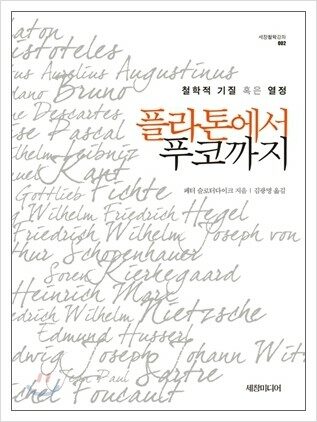 세창철학강좌
002
aton
istoteles
elius Aurelius Augustinus
dano Bruno
Descartes
Pascal
Wilhelm Leibniz
Kant
Gottlieb Fichte
g Wilhelm Friedrich Hegel
Friedrich Wilhelm Joseph von
thur Schopenhauer
Soren Kierkegaard
Heinrich Marx
iedrich Wilhelm Nietzsche
Edmund Husserl
udwig Joseph Johann Witt
Jean Paul Sartre
ichel Foucault
철학적 기질 혹은 열정
플라톤에서
푸코까지
페터 슬로터다이크 지음 | 김광명 옮김
세창미디어